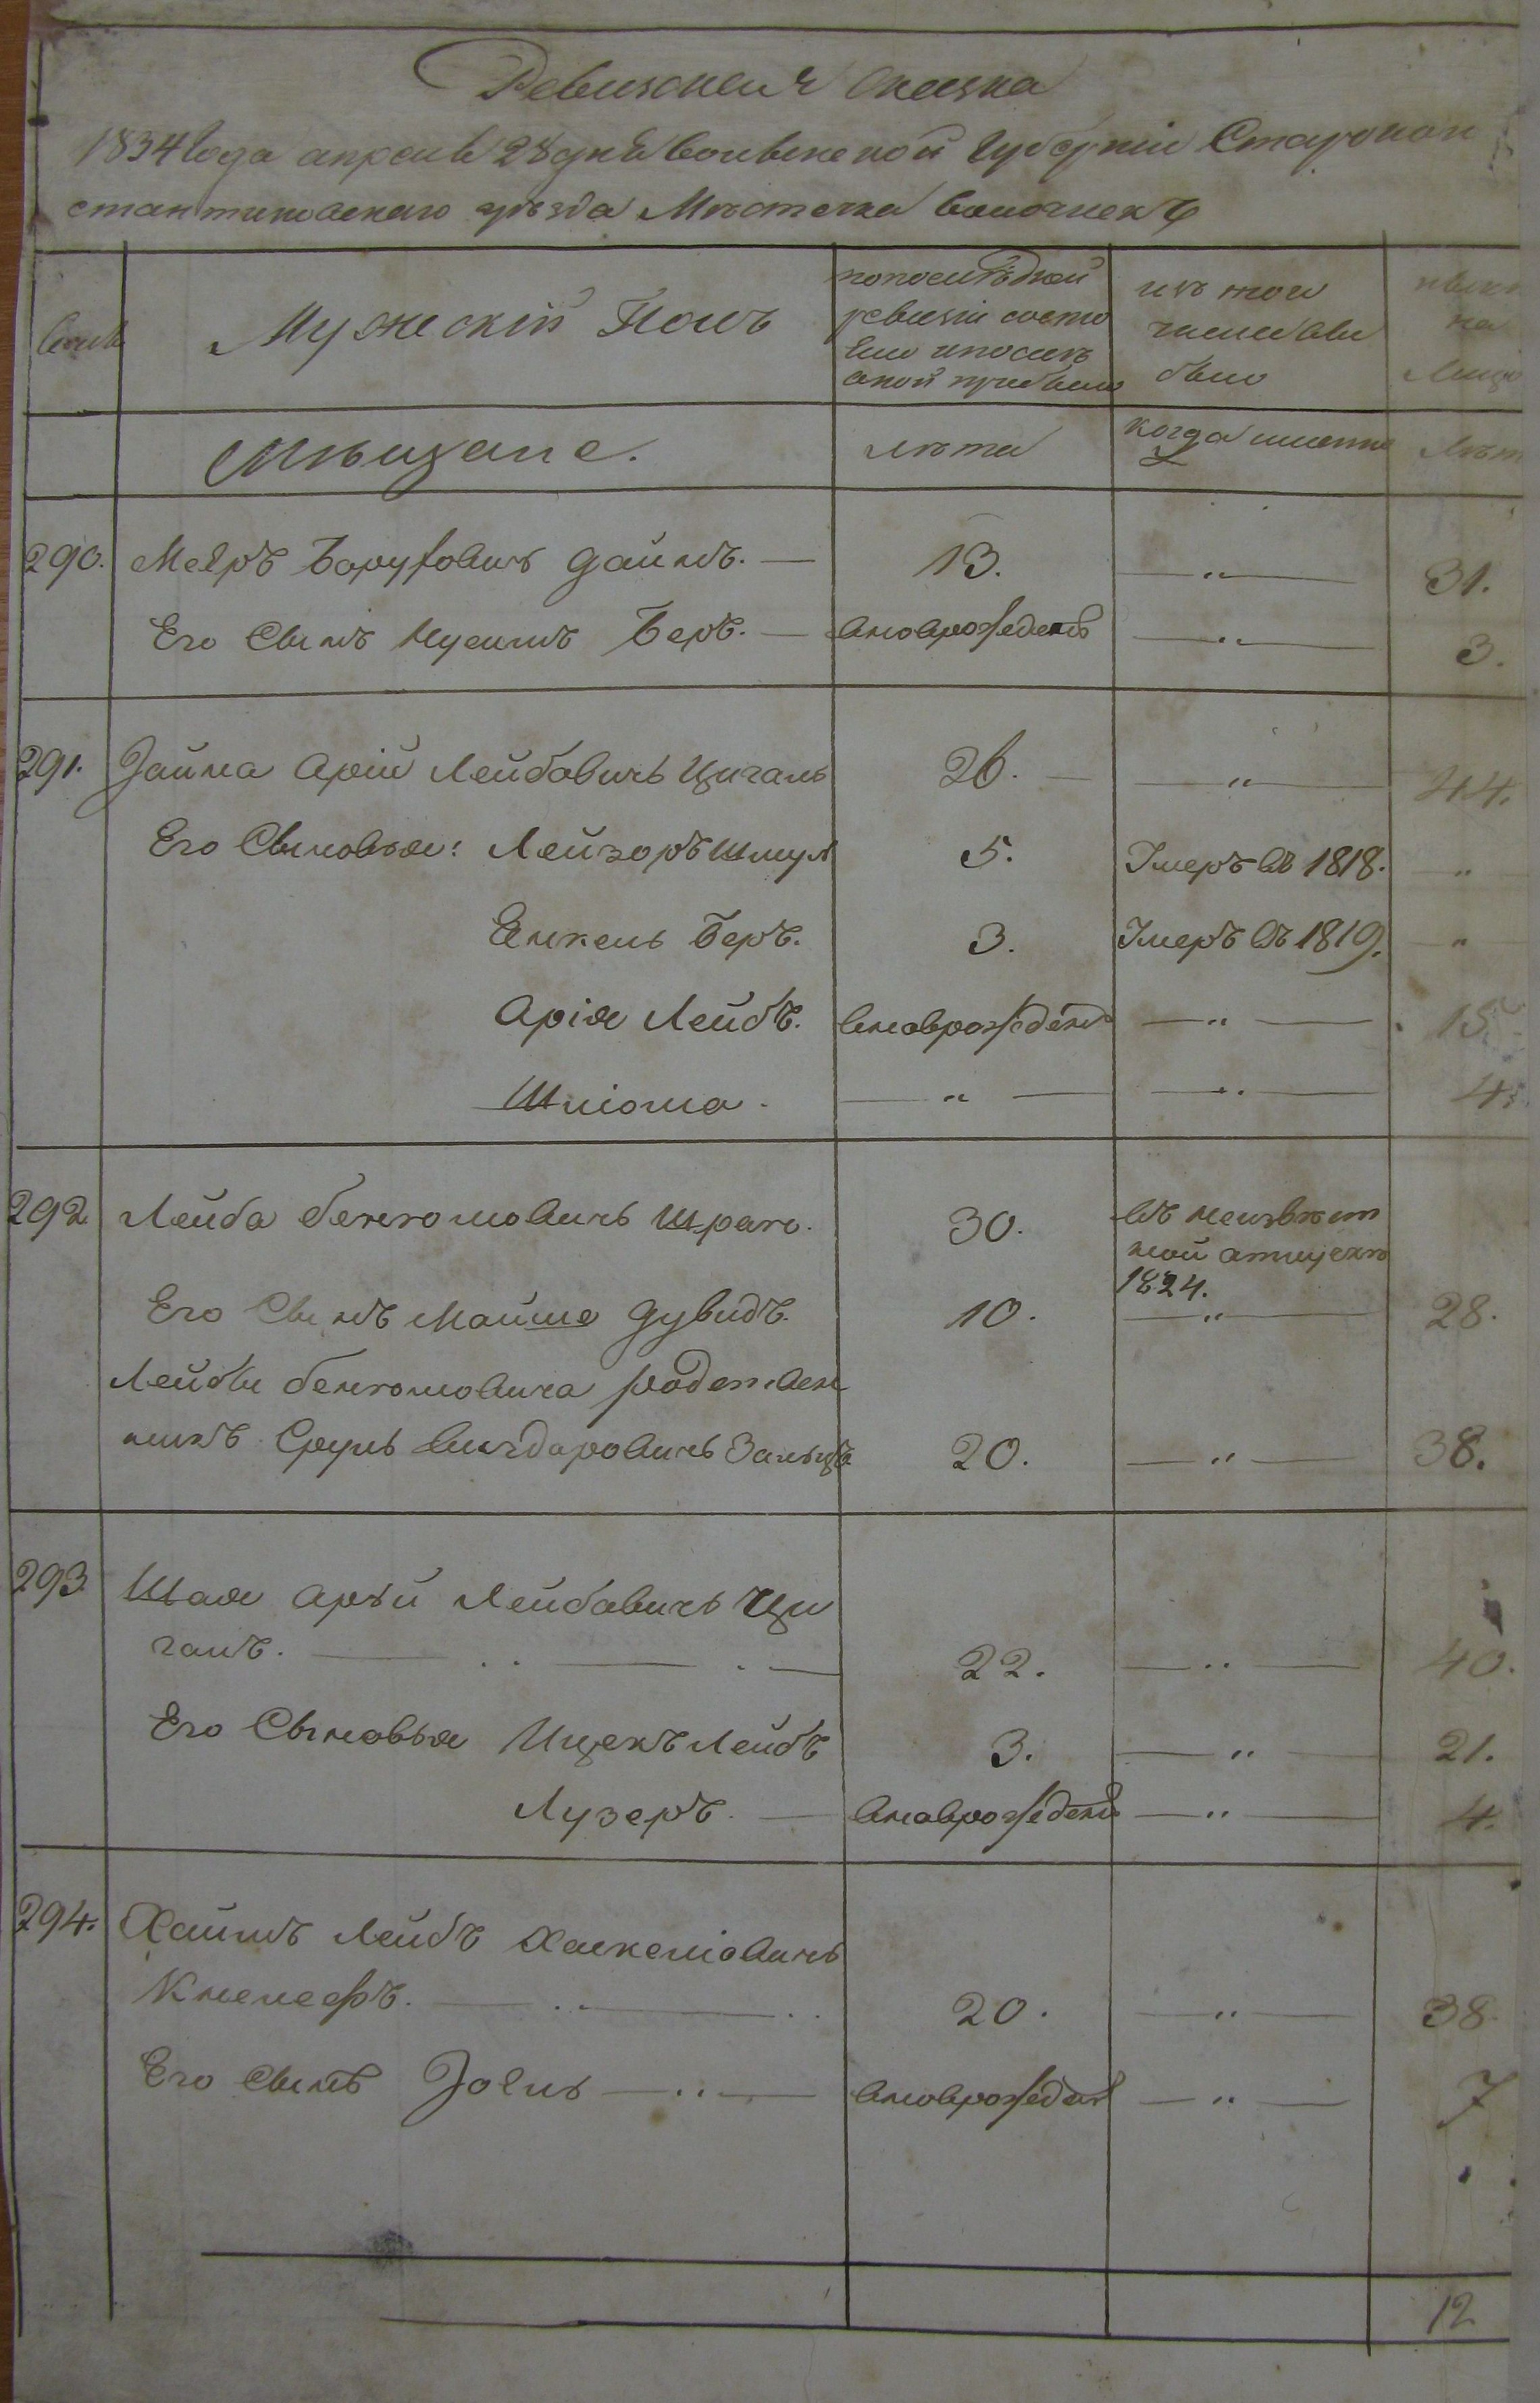 Ревизская Сказка
1834 года апреля 28 дня Волынской Губерніи Старокон
стантиновскаго уѣзда Мѣстечка Волочискъ
Мужескій Полъ
по последней
ревизіи состо
яло и после
оной прибыло
изъ того
числа вы
было
ныне
на
Лицо
Мѣщане.
лѣта
когда именно
лѣт
290. Мееръ Боруховичъ Дайнъ. — 13. — „ — 31.
Его Сынъ Нусимъ Беръ. — вновърожденъ — „ — 3.
291. Займа Арій Лейбовичъ Циганъ 26. — „ — 44.
Его Сыновья: Лейзоръ Шмул 5. Умеръ въ 1818. „
Янкель Беръ. 3. Умеръ въ 1819. „
Арія Лейбъ. вновърожденъ — „ — 15.
Шліома. — „ — — „ — 4.
292. Лейба Бенюмовичъ Шрагъ. 30. въ неизвѣст
ной отлучкѣ
1824.
Его Сынъ Мошко Дувидъ. 10. — „ — 28.
Лейбы Бенюмовича родствен
никъ Сруль Вигдоровичъ Зальцъ 20. — „ — 38.
293. Шая Арый Лейбовичъ Ци
ганъ. 22. — „ — 40.
Его Сыновья Ицекъ Лейбъ 3. — „ — 21.
Лузеръ. — вновърожденъ — „ — 4.
294. Хаимъ Лейбъ Хаскеліовичъ
Кнелефъ. 20. — „ — 38.
Его Сынъ Іоель — „ — вновърожден — „ — 7
12